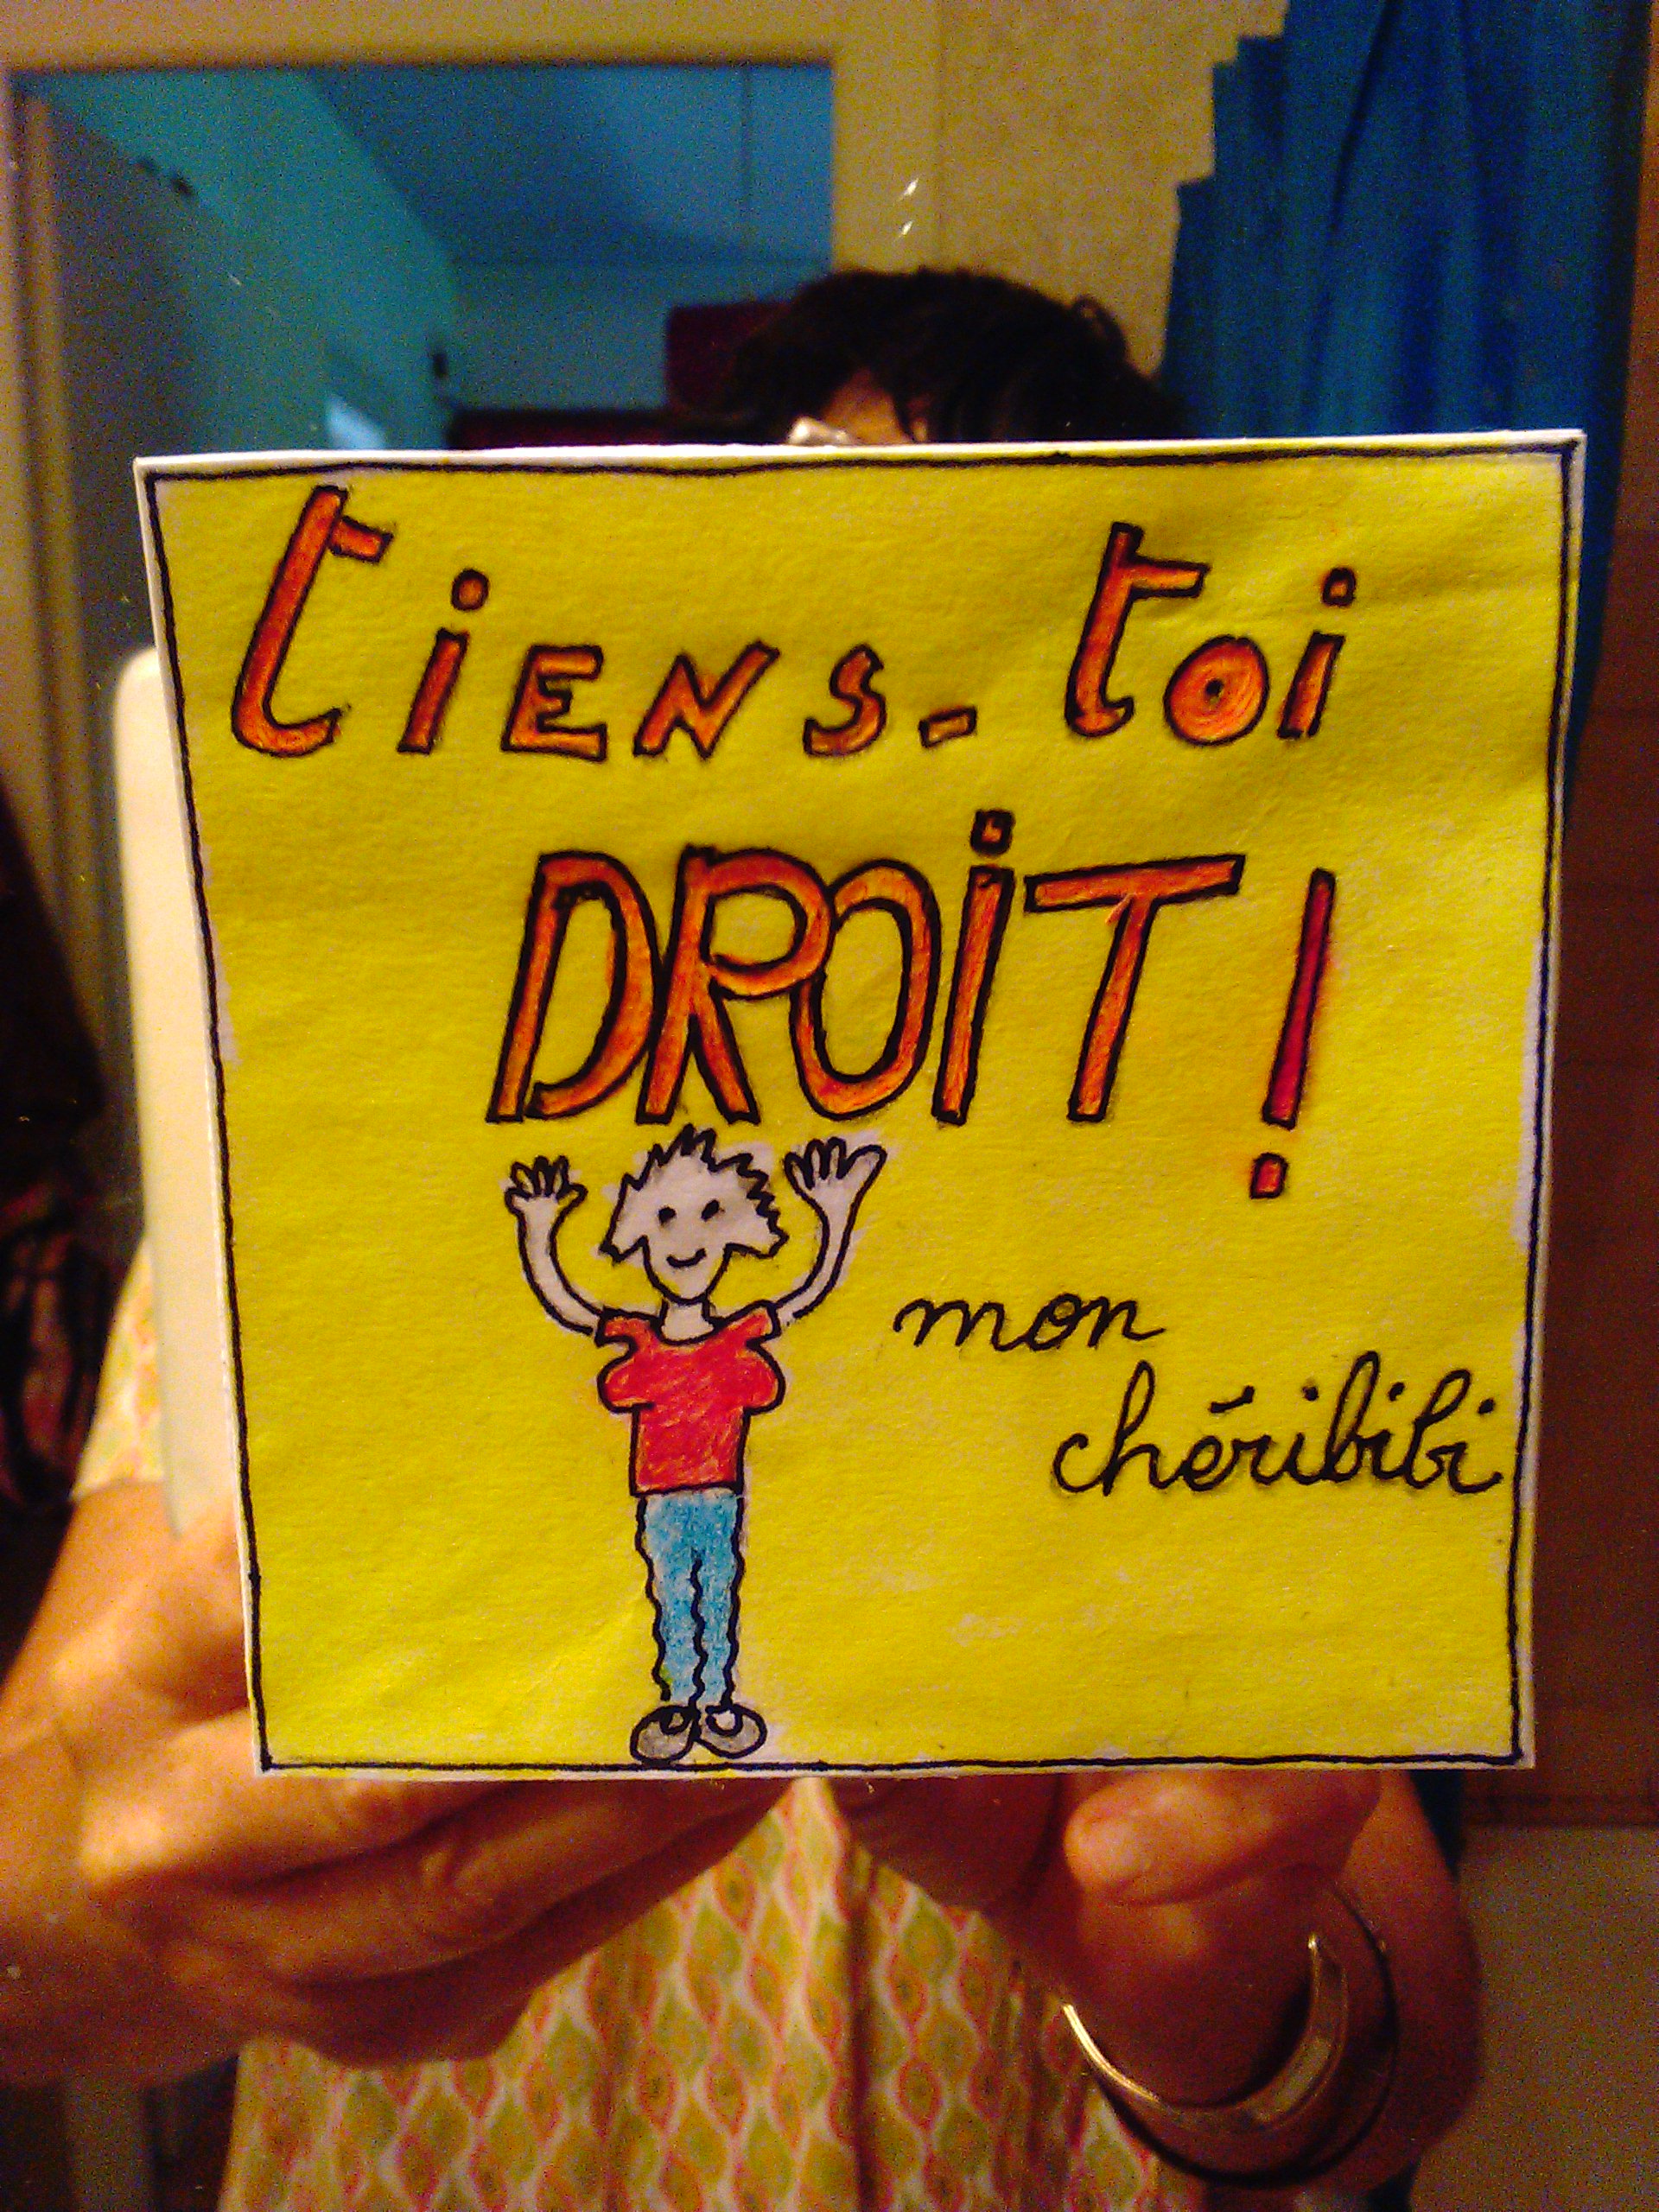 tiENS-toi
DROiT!
mon
chéribibi